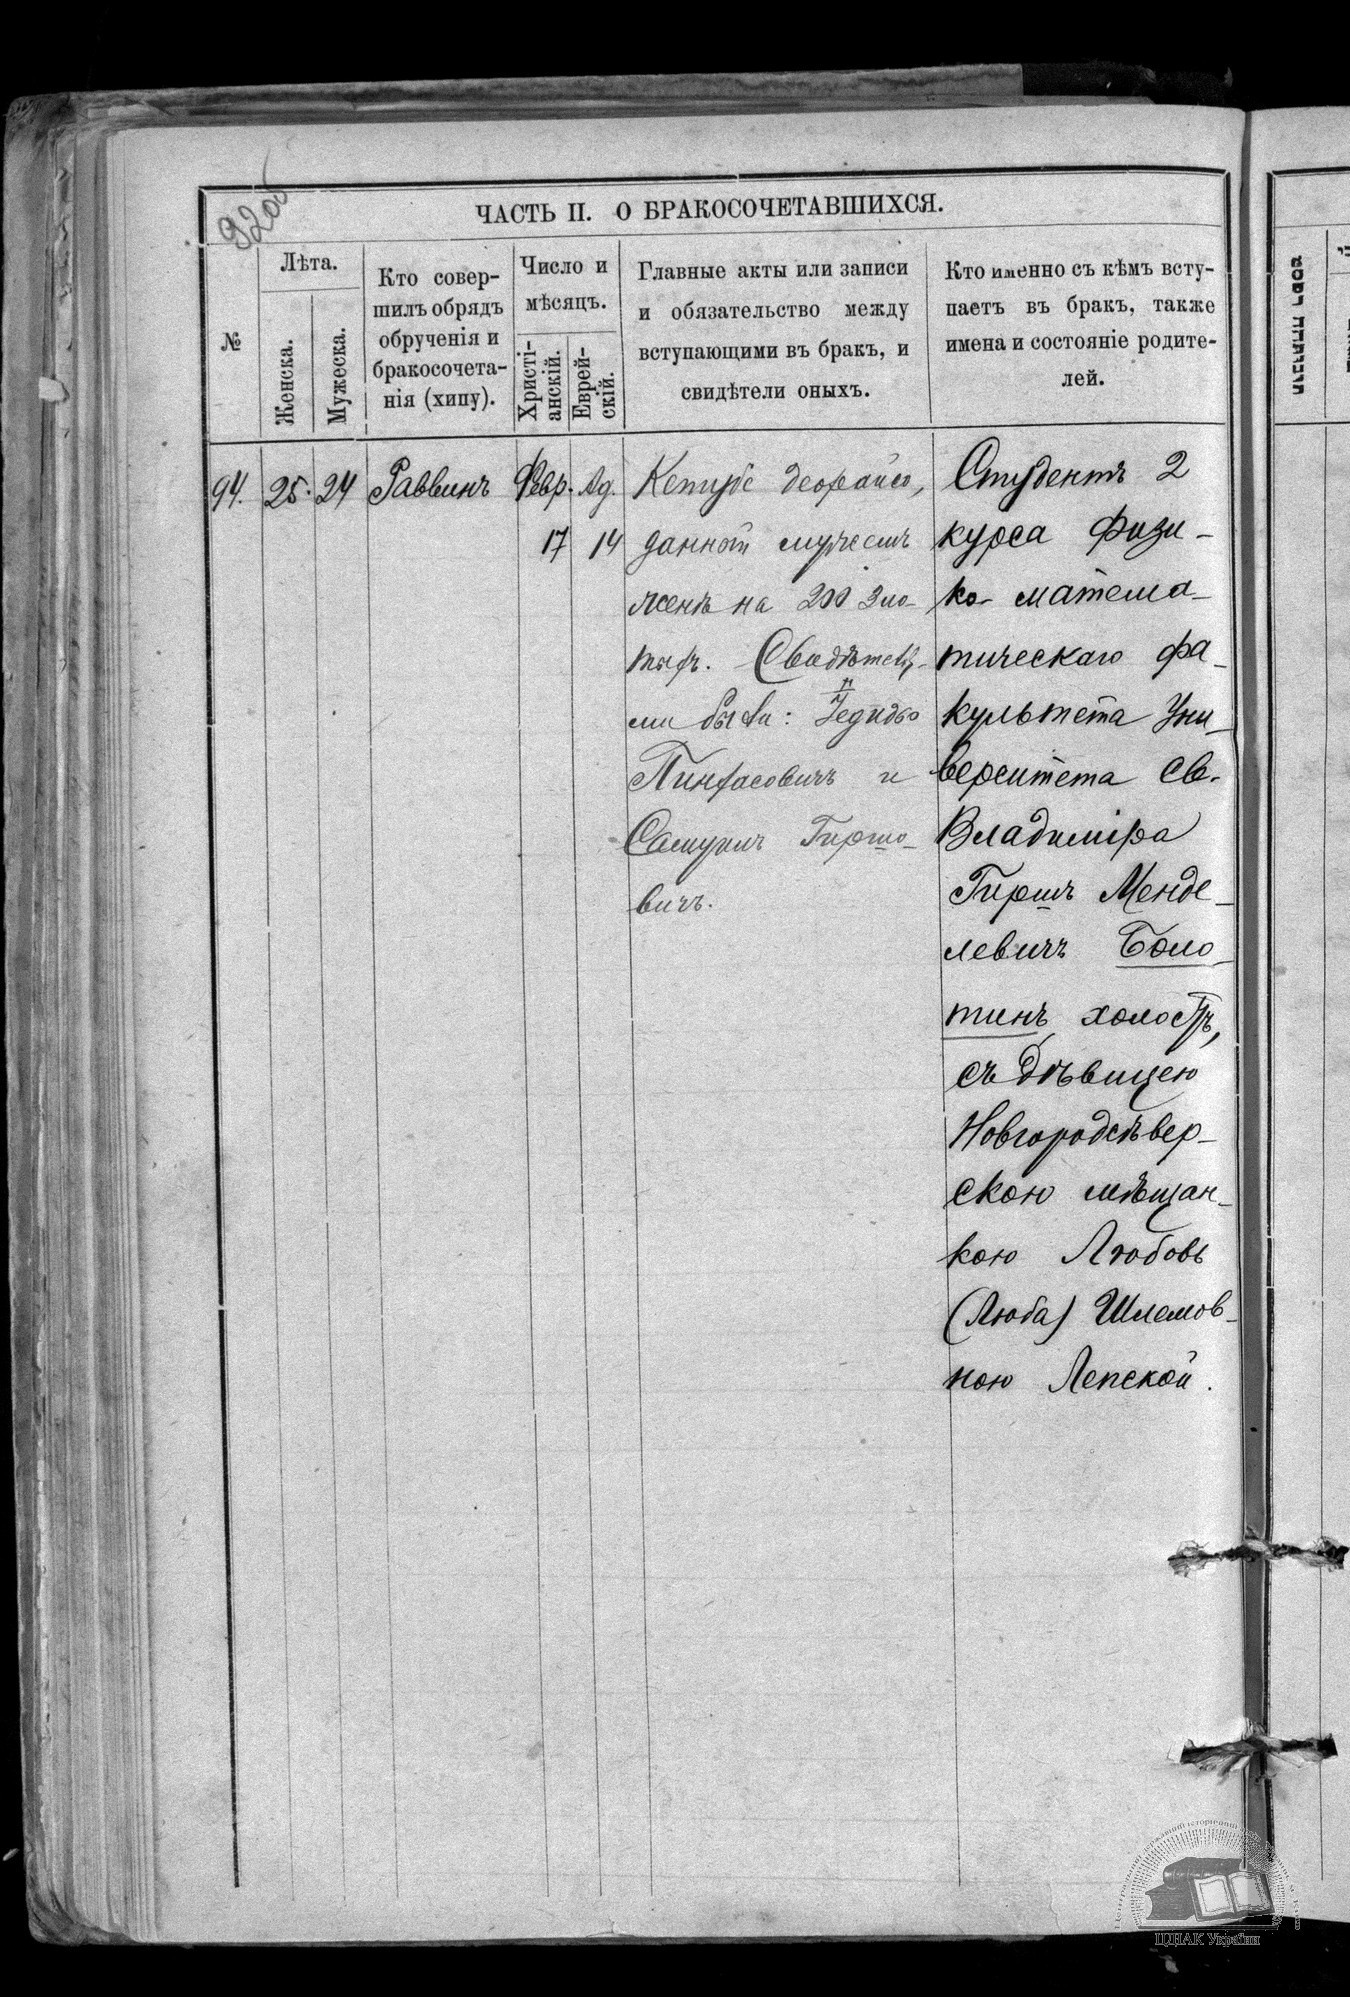 920б
ЧАСТЬ II. О БРАКОСОЧЕТАВШИХСЯ.
№
Лѣта.
Женска.
Мужеска.
Кто совер-
шилъ обрядъ
обрученія и
бракосочета-
нія (хипу).
Число и
мѣсяцъ.
Христі-
анскій.
Еврей-
скій.
Главные акты или записи
и обязательство между
вступающими въ бракъ, и
свидѣтели оныхъ.
Кто именно съ кѣмъ всту-
паетъ въ бракъ, также
имена и состояніе родите-
лей.
94.
25.
24
Раввинъ
Февр.
17
Ад.
14
Кетубе деорайсо,
данной мужемъ
женѣ на 200 зло-
тыхъ. Свидѣтеля-
ми были:
Пинхасовичъ и
Самуилъ Гиршо-
вичъ.
Студентъ 2
курса физи-
ко-матема-
тическаго фа-
культета Уни-
верситета Св.
Владиміра
Гиршъ Менде-
левичъ Боло-
тинъ, холостъ,
съ дѣвицею
Новгородсѣвер-
скою мѣщан-
кою Любовь
(Люба) Шлемов-
ною Лепской.
ЦДІАК України